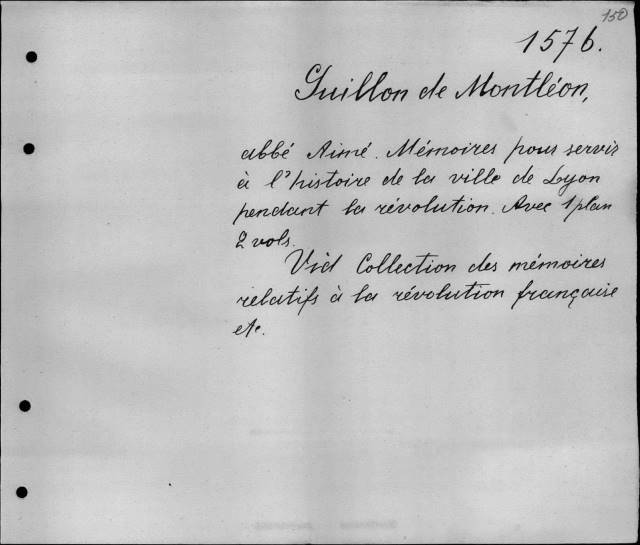 150
1576.
Guillon de Montléon,
abbé Aimé. Mémoires pour servir
à l'histoire de la ville de Lyon
pendant la révolution. Avec 1 plan
2 vols.
Vid Collection des mémoires
relatifs à la révolution française
etc.